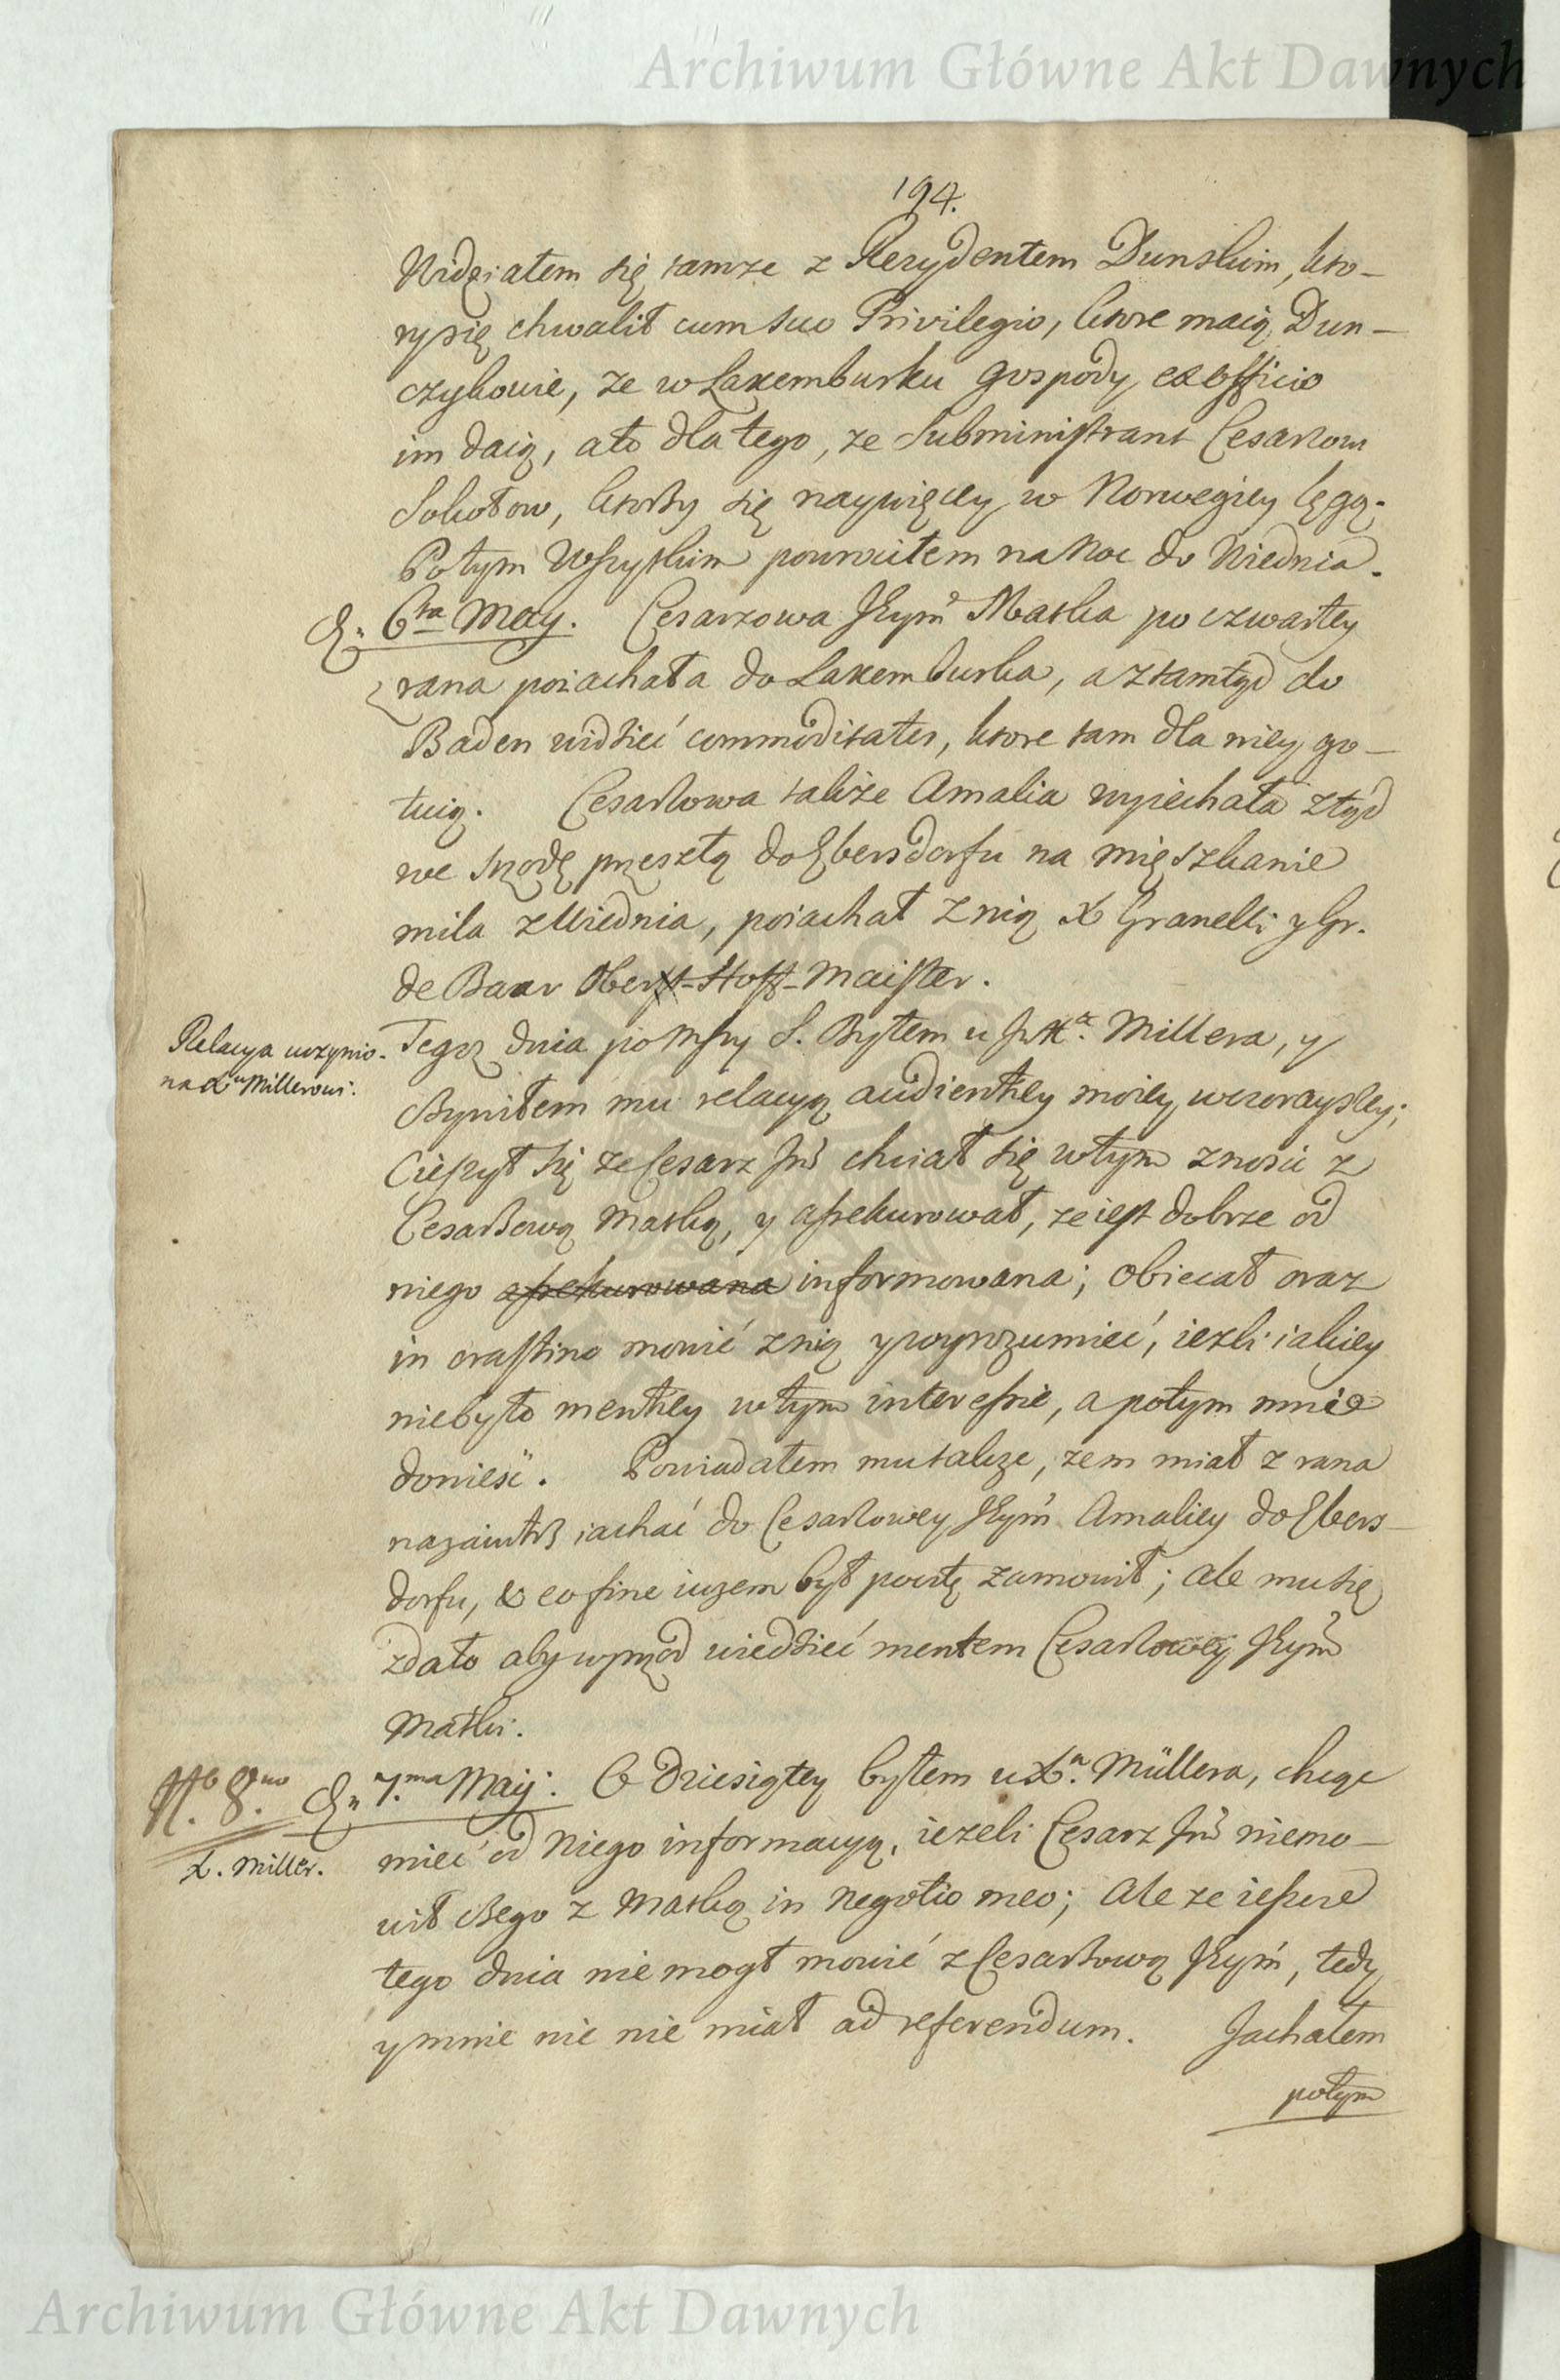 Archiwum Główne Akt Dawnych
194.
Widziałem się tamże z Rezydentem Dunskim, kto-
ry się chwalił cum suo Privilegio, ktore maią Dun-
czykowie, że w Laxemburku gospody ex officio
im daią, a to dla tego, że subministrant Cesarzowi
Sokołow, ktorzy się naywięcey w Norwegiey lęgą.
Po tym wszystkim powrociłem na Noc do Wiednia.
D. 6ta May. Cesarzowa Jeym Matka po czwartey
z rana poiachała do Laxemburka, a ztamtąd do
Baden widzieć commoditates, ktore tam dla niey go-
tuią. Cesarzowa także Amalia wyiechała ztąd
we srzodę przeszłą do Ebersdorfu na mięszkanie
mila z Wiednia, poiachał z nią X Granelli y Gr.
de Baar Oberst-Hoff-Maister.
Relacya uczynio-
na Xu Millerowi.
Tegoż dnia po Mszy S. Byłem u Jm Xa. Millera, y
czyniłem mu relacyą audientiey moiey wczorayszey;
Cieszył się że Cesarz Jmć chciał się w tym znosić z
Cesarzową Matką, y assekurował, że iest dobrze od
niego assekurowana informowana; obiecał oraz
in crastino mowić z nią y wyrozumieć, ieżli iakiey
niebyło mentiey w tym interessie, a potym mnie
donieść. Powiadałem mu także, żem miał z rana
nazaiutrz iachać do Cesarzowey Jeym Amaliey do Ebers-
dorfu, & eo fine iużem był pocztę zamowił; ale mu się
zdało aby wprzod wiedzieć mentem Cesarzowey Jeym
Matki.
Nb 8vo
D. 7.ma Maij. O dziesiątey byłem u Xa. Müllera, chcąc
X. Miller.
mieć od Niego informacyą, ieżeli Cesarz Jmć niemo-
wił czego z Matką in negotio meo; Ale że ieszcze
tego dnia nie mogł mowić z Cesarzową Jeym, tedy
y mnie nic nie miał ad referendum. Jachałem
potym
Archiwum Główne Akt Dawnych